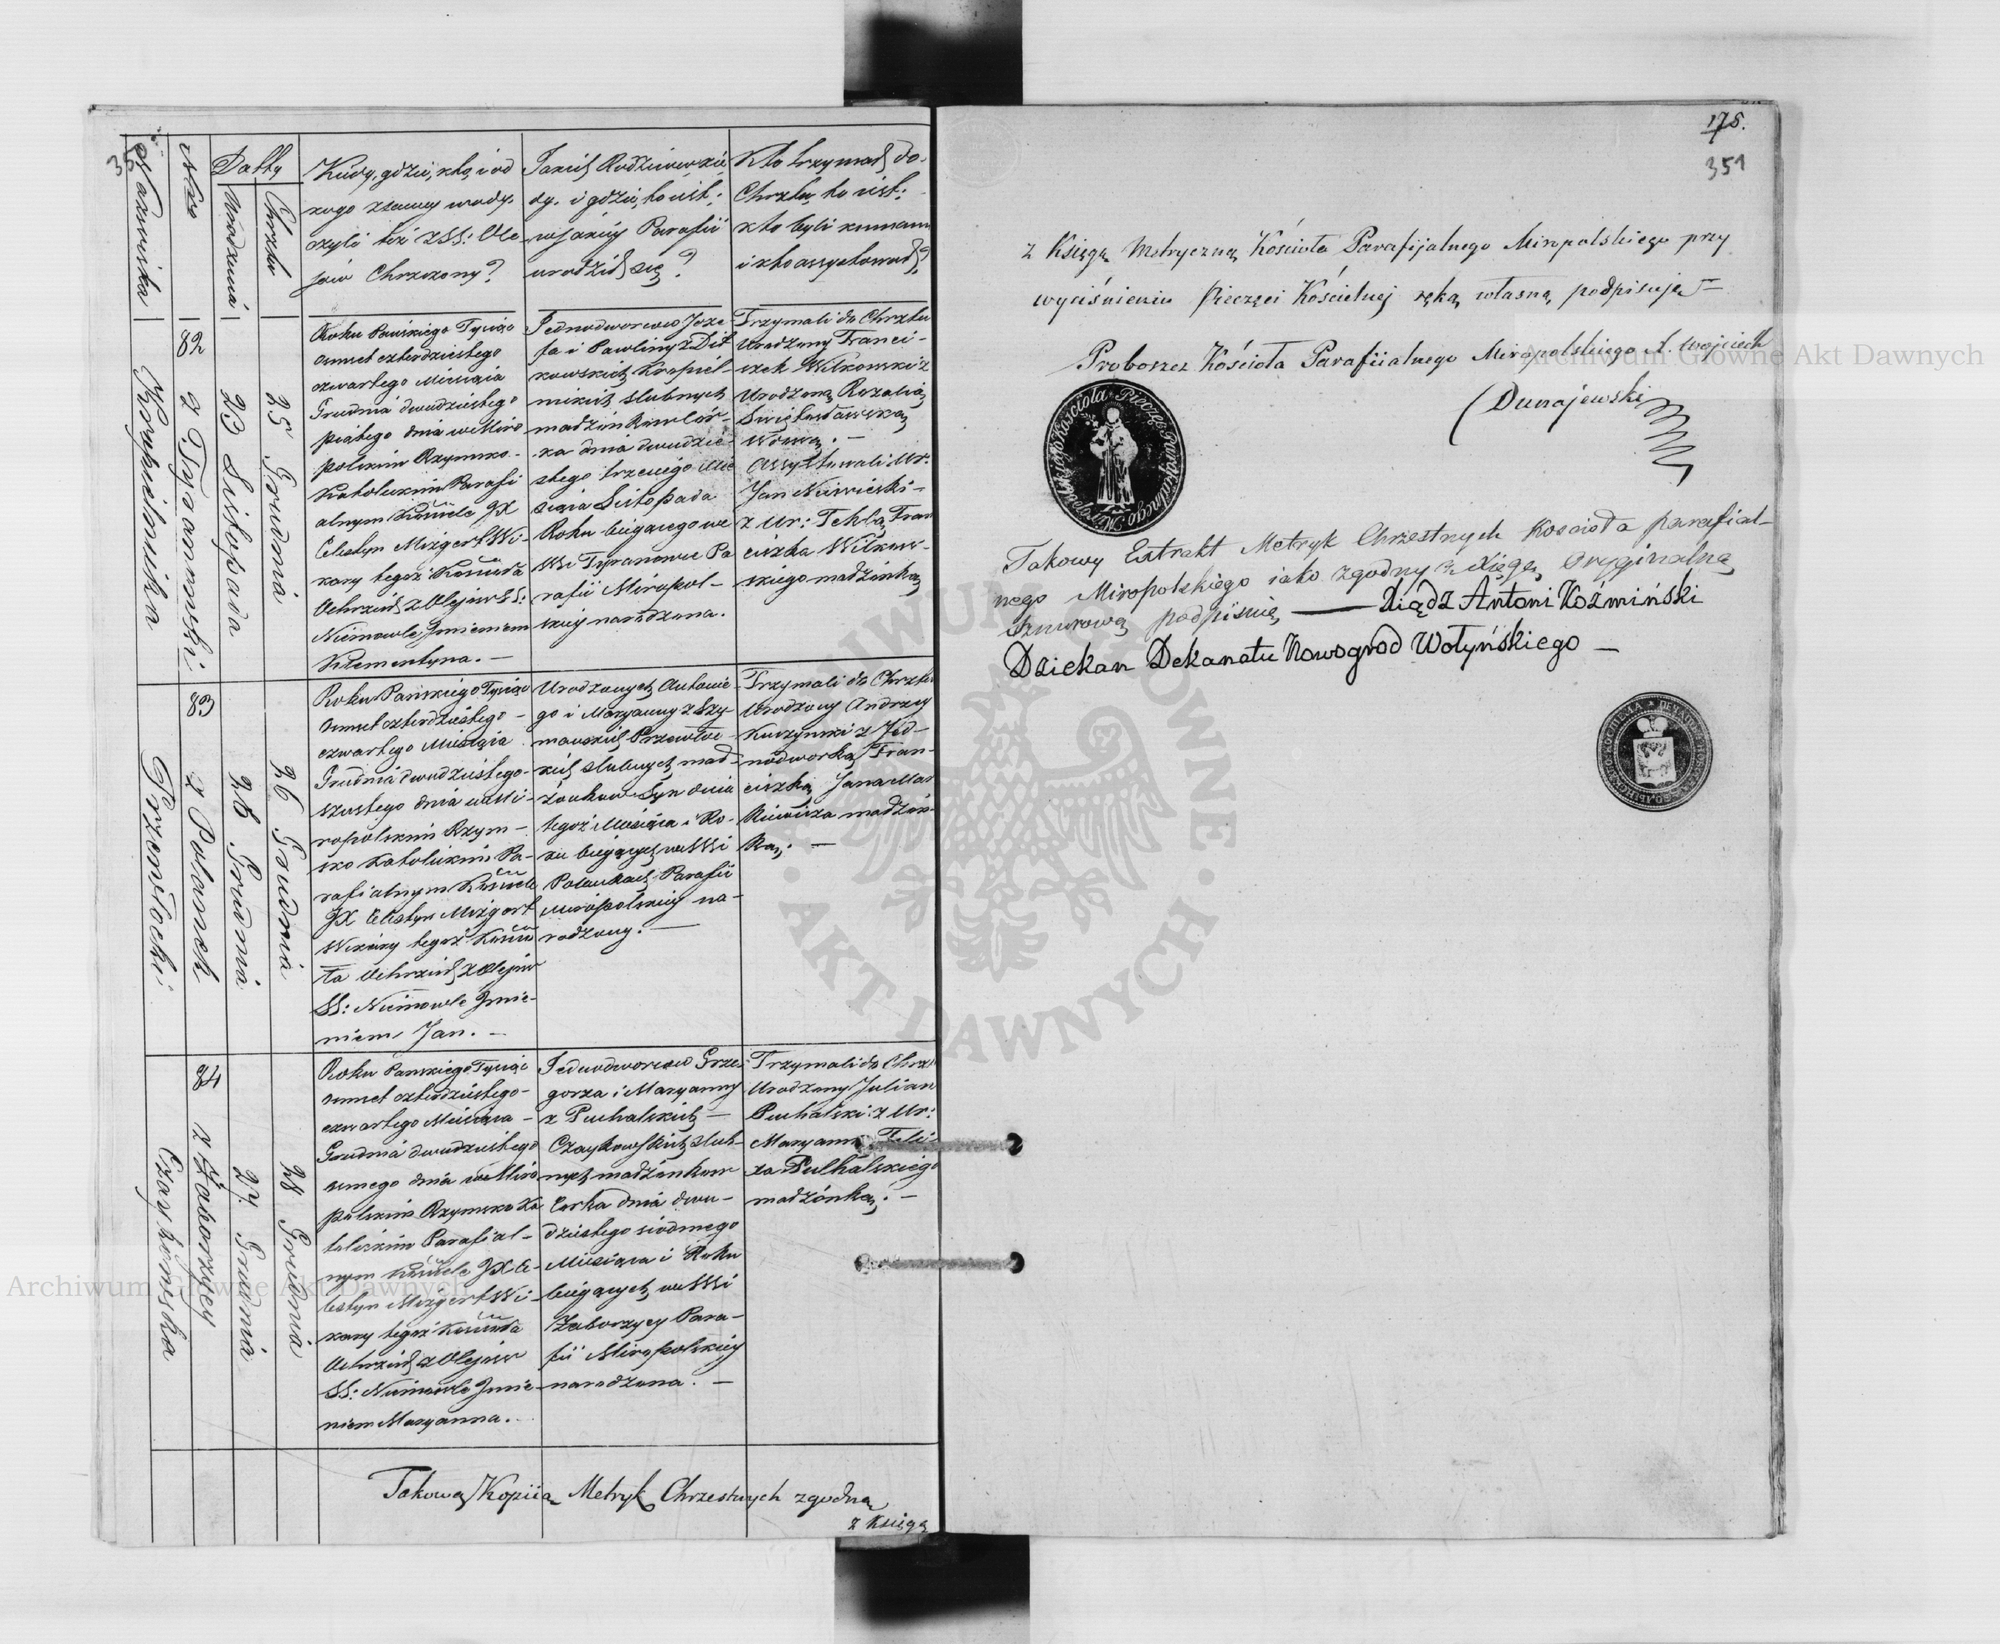 35
Nazwiska
Nro
Datty
Urodzenia
Chrztu
Kiedy, gdzie, kto, i od
kogo z samey wody,
czyli też z SS: Ole-
jów Chrzczony?
Jakich Rodziców, kie-
dy, i gdzie, to iest:
w jakiey Parafii
urodził się?
Kto trzymał do
Chrztu, to iest:
kto byli kumami
i kto assystował?
82
z Tyranówki
Krupielnicka
23 Listopada
25 Grudnia
Roku Pańskiego Tysiąc
osmset czterdziestego
czwartego Miesiąca
Grudnia dwudziestego
piątego dnia w Miro
polskim Rzymsko-
Katolickim Parafi
alnym Kościele JX
Celestyn Mizgert Wi-
kary tegoż Kościoła
Ochrzcił z Olejów SS:
Niemowle Imieniem
Klementyna. —
Jednodworców Joze-
fa i Pawliny z Dit
kowskich Krupiel
nickich slubnych
małżonków Cór-
ka dnia dwudzie-
stego trzeciego Mie
siąca Listopada
Roku bieżącego we
Wsi Tyranowce Pa
rafii Miropol-
skiey narodzona.
Trzymali do Chrztu
Urodzony Franci-
szek Witkowski z
Urodzoną Rozalią
Święcławską
Wdową. —
Assystowali Ur:
Jan Niewieski
z Ur: Teklą Fran
ciszka Witkow-
skiego małżonką
83
z Polanek
Przewłocki
26 Grudnia
26 Grudnia
Roku Pańskiego Tysiąc
osmset czterdziestego-
czwartego Miesiąca
Grudnia dwudziestego-
szostego dnia w Mi-
ropolskim Rzym-
sko Katolickim Pa-
rafialnym Kościele
JX Celestyn Mizgert
Wikary tegoż Kościo
ła Ochrzcił z Olejów
SS: Niemowle Imie-
niem Jan. —
Urodzonych Antonie-
go i Maryanny z Szy-
mańskich Przewłoc-
kich slubnych mał-
żonków Syn dnia
tegoż Miesiąca i Ro-
ku bieżących we Wsi
Polankach Parafii
Miropolskiey na-
rodzony. —
Trzymali do Chrztu
Urodzony Andrzey
Kuczynski z Jed-
nodworką Fran-
ciszką Jana Mar
kiewicza małżon-
ką. —
84
z Zaborzycy
Czaykowska
27 Grudnia
28 Grudnia
Roku Pańskiego Tysiąc
osmset czterdziestego-
czwartego Miesiąca-
Grudnia dwudziestego
osmego dnia w Miro
polskim Rzymsko Ka
tolickim Parafial-
nym Kościele JX Ce-
lestyn Mizgert Wi-
kary tegoż Kościoła
Ochrzcił z Olejów
SS: Niemowle Imie-
niem Maryanna.
Jednodworców Grze-
gorza i Maryanny
z Puchalskich —
Czaykowskich slub-
nych małżonków
Corka dnia dwu-
dziestego siodmego
Miesiąca i Roku
bieżących we Wsi
Zaborzycy Para-
fii Miropolskiey
narodzona. —
Trzymali do Chrz
Urodzony Julian
Puchalski z Ur:
Maryanną Feli-
xa Pulhalskiego
małżonką. —
Takową Kopiią Metryk Chrzestnych zgodną
z Księgą
175.
351
z Księgą Metryczną Kościoła Parafijalnego Miropolskiego przy
wyciśnieniu Pieczęci Kościelnej ręką własną podpisuję —
Proboszcz Kościoła Parafiialnego Miropolskiego X. Wojciech
Dunajewski
Pieczęć Parafialnego Miropolskiego Kościoła
Takowy Extrakt Metryk Chrzestnych Kościoła parafial-
nego Miropolskiego jako zgodny z Xięgą Oryginalną
Sznurową podpisuię — Xiądz Antoni Koźmiński
Dziekan Dekanatu Nowogrod Wołyńskiego —
Archiwum Główne Akt Dawnych
Archiwum Główne Akt Dawnych
ARCHIWUM GŁÓWNE · AKT DAWNYCH ·